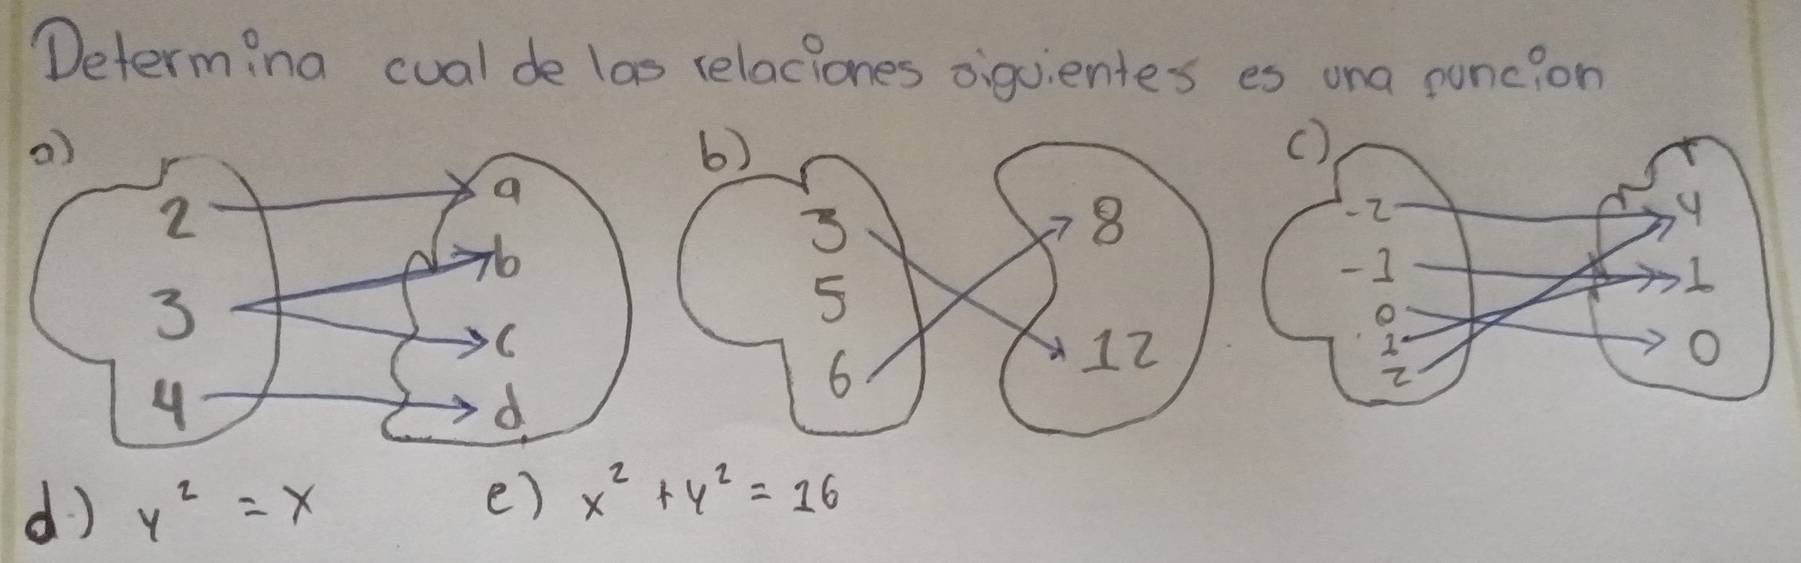 Determina cual de las relaciones siguientes es una puncion
a)
2
3
4
a
b
c
d
b)
3
5
6
8
12
c)
-2
-1
0
1
2
4
1
0
d.) y² = x
e) x² + y² = 16